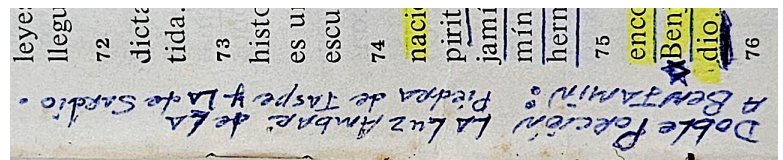 leye
llegu
72
dicta
tida.
73
histo
es un
escu
74
naci
pirit
jamí
mín
hern
75
enco
Benj
dio.
76
DOBLE PORCIÓN LA LUZ AMBAR de LA
A BENJAMIN: PIEDRA de JASPE y LA de SARDIO.